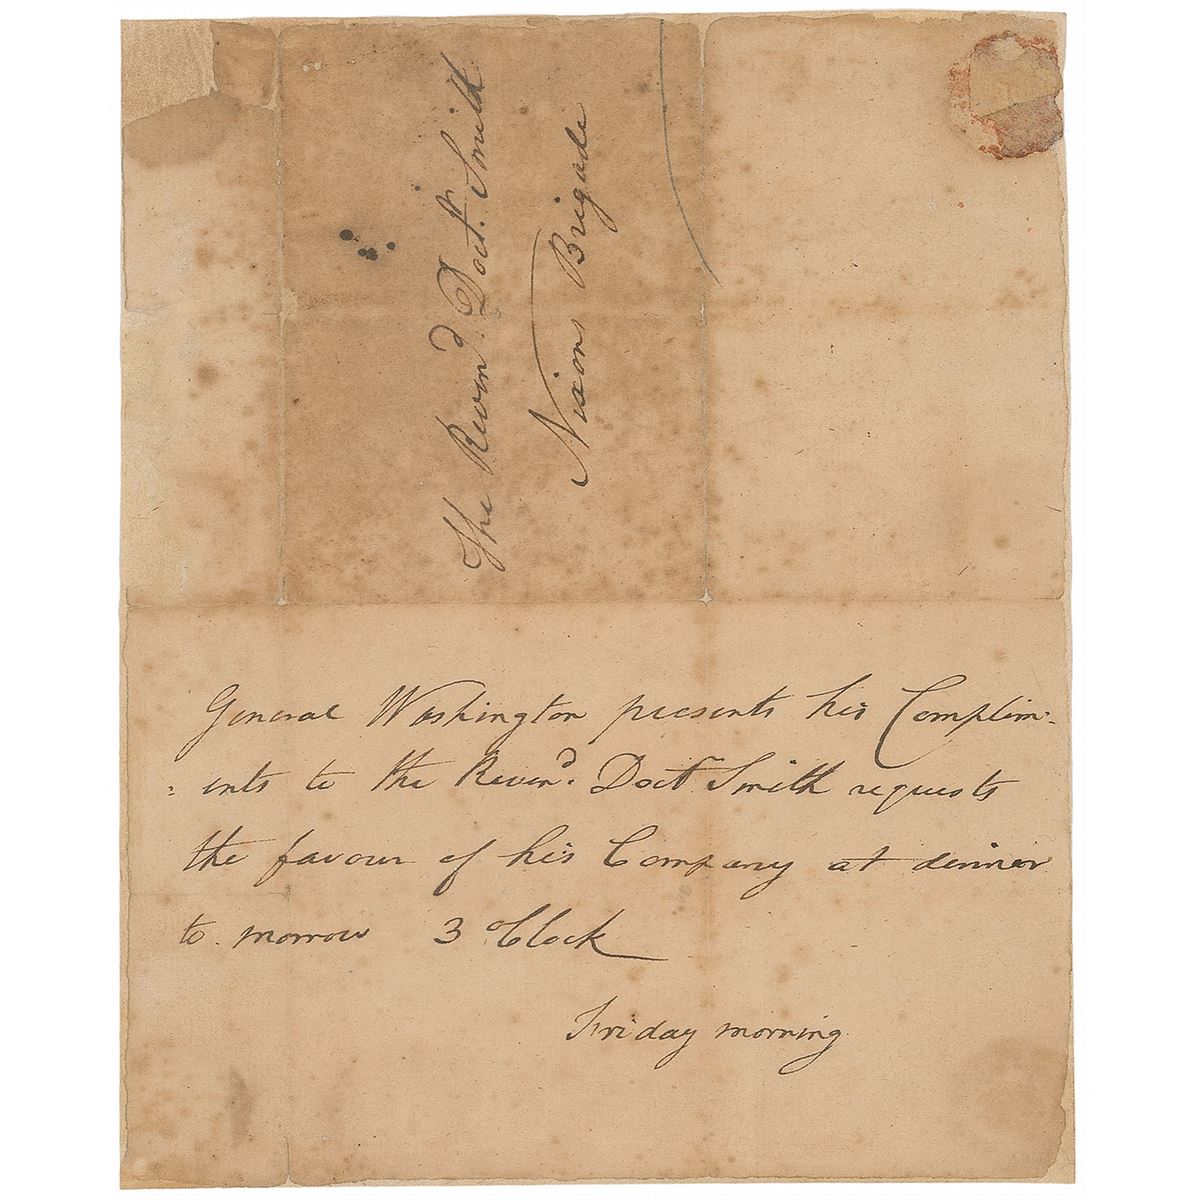 The Revend. Doctr. Smith
Nixons Brigade
General Washington presents his Complim:
: ents to the Revend. Doctr. Smith requests
the favour of his Company at dinner
to morrow 3 oClock
Friday morning